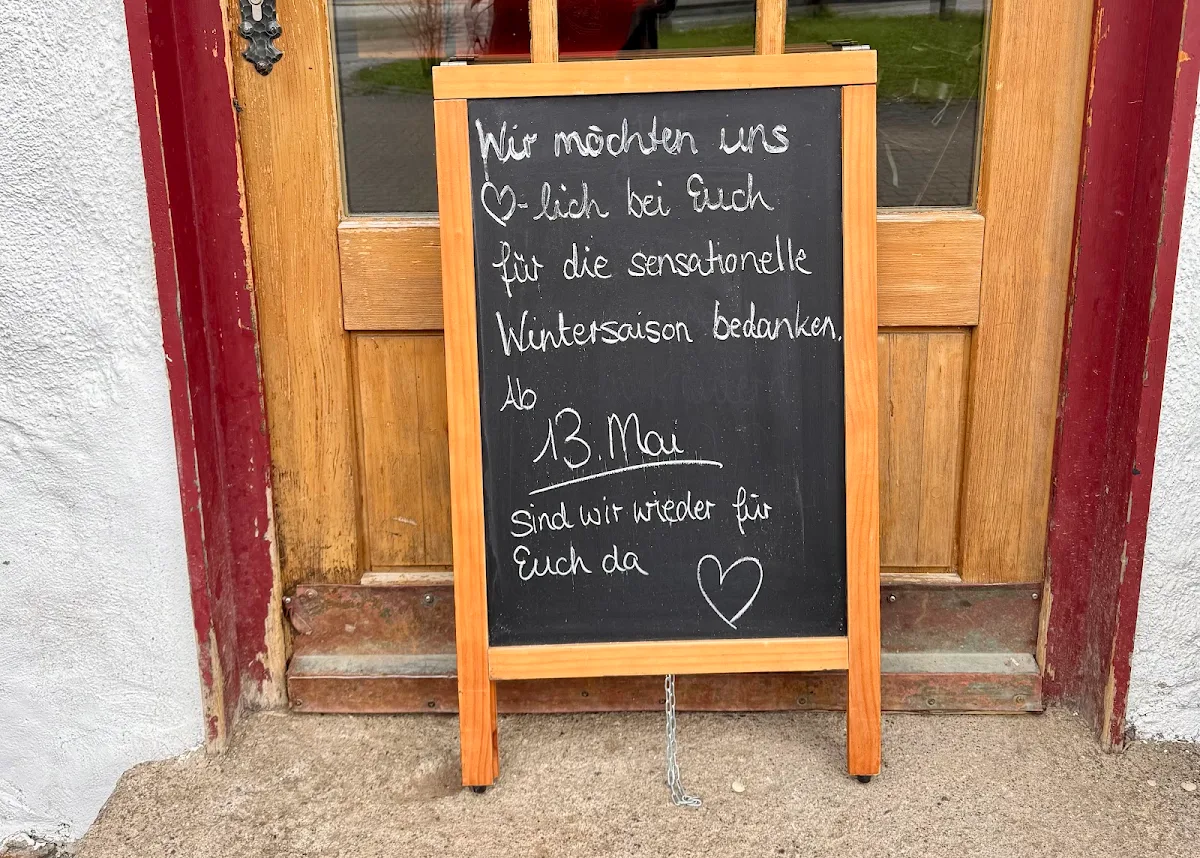 Wir möchten uns
♡-lich bei Euch
für die sensationelle
Wintersaison bedanken.
Ab
13. Mai
sind wir wieder für
Euch da ♡